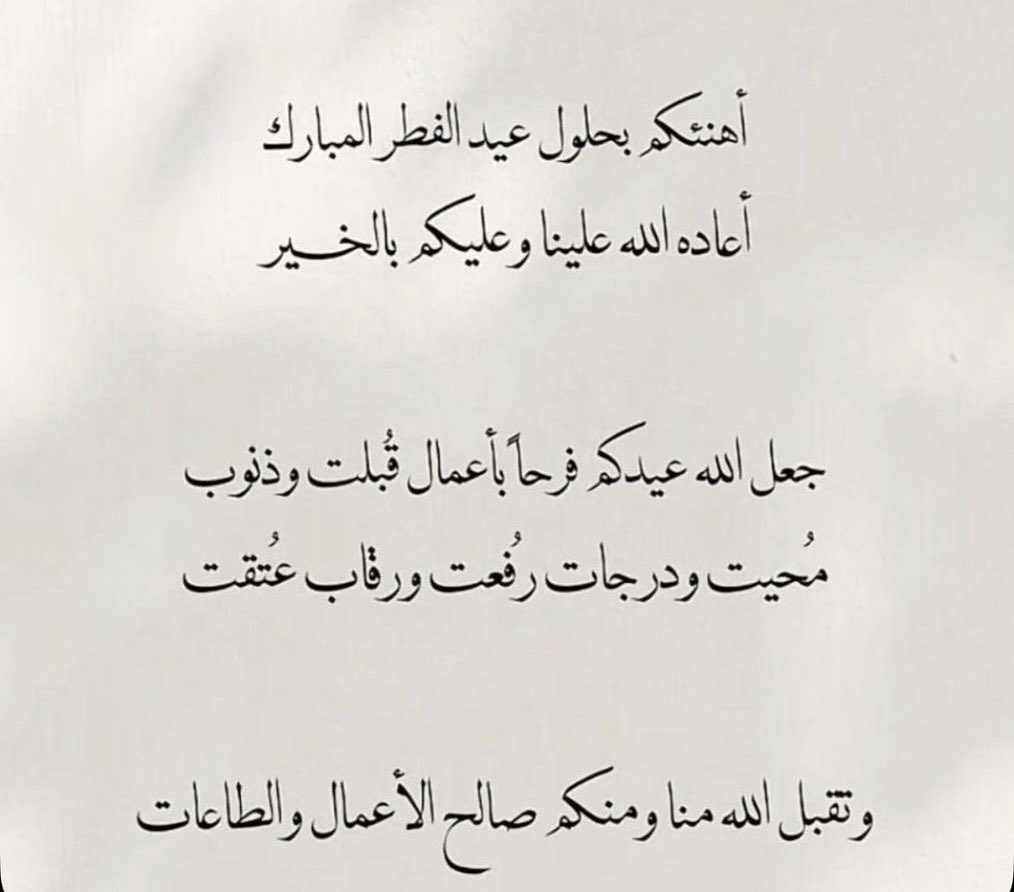 أهنئكم بحلول عيد الفطر المبارك
أعاده الله علينا وعليكم بالخير
جعل الله عيدكم فرحاً بأعمال قُبلت وذنوب
مُحيت ودرجات رُفعت ورقاب عُتقت
وتقبل الله منا ومنكم صالح الأعمال والطاعات